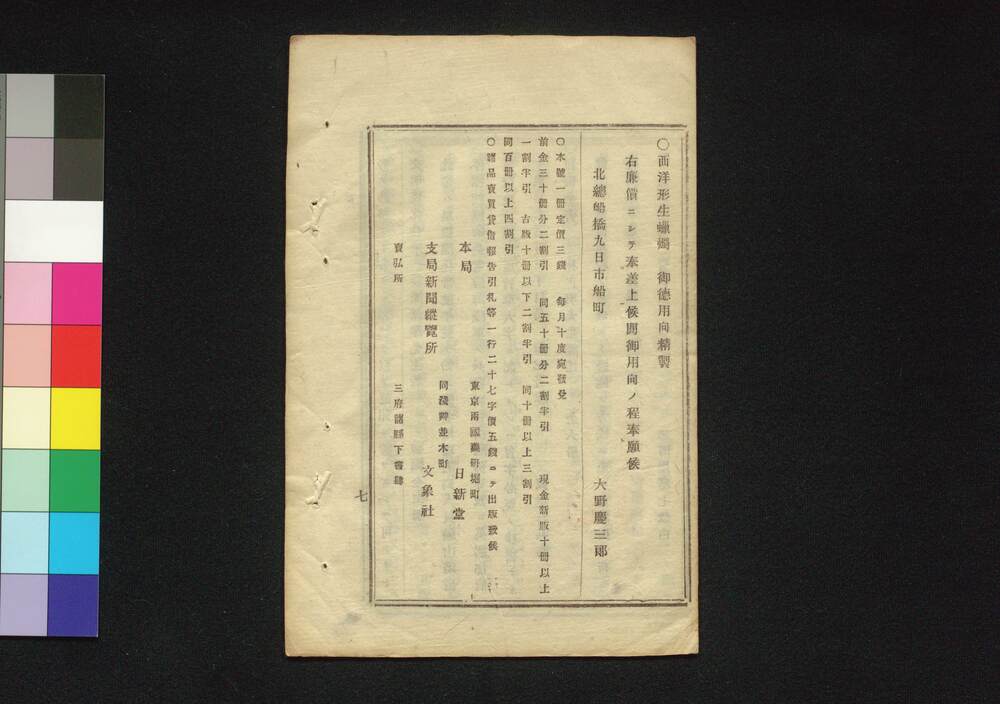 〇西洋形生蠟燭 御徳用向精製
右廉價ニシテ奉差上候間御用向ノ程奉願候
北總船橋九日市船町 大野慶三郎
〇本號一冊定價三錢 每月十度宛發兌
前金三十冊分二割引 同五十冊分二割半引 現金新版十冊以上
一割半引 古版十冊以下二割半引 同十冊以上三割引
同百冊以上四割引
〇諸品賣買貸借報告引札等一行二十七字價五錢ニテ出版致候
東京兩國藥研堀町
本局 日新堂
同淺艸並木町
支局新聞縱覽所 文象社
賣弘所 三府諸縣下書肆
七